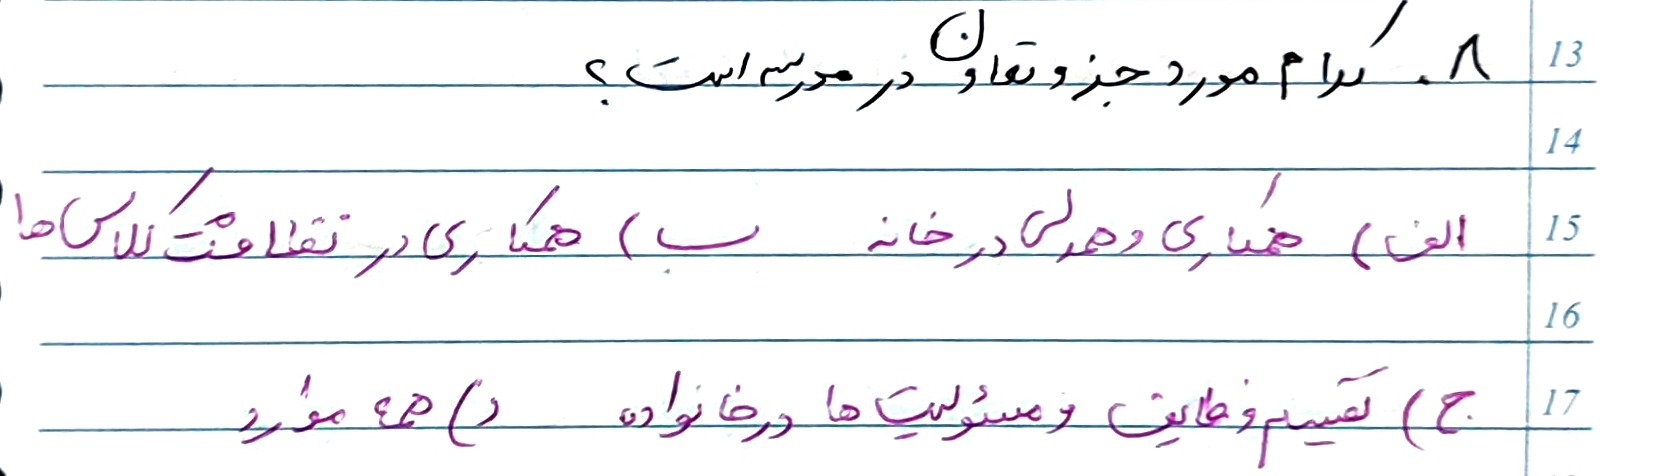 13 ۸. کدام مورد جزو تعاون در مدرسه است؟
14
15 الف) همکاری و همدلی در خانه ب) همکاری در نظافت کلاس ها
16
17 ج) تقسیم وظایف و مسئولیت ها در خانواده د) همه موارد